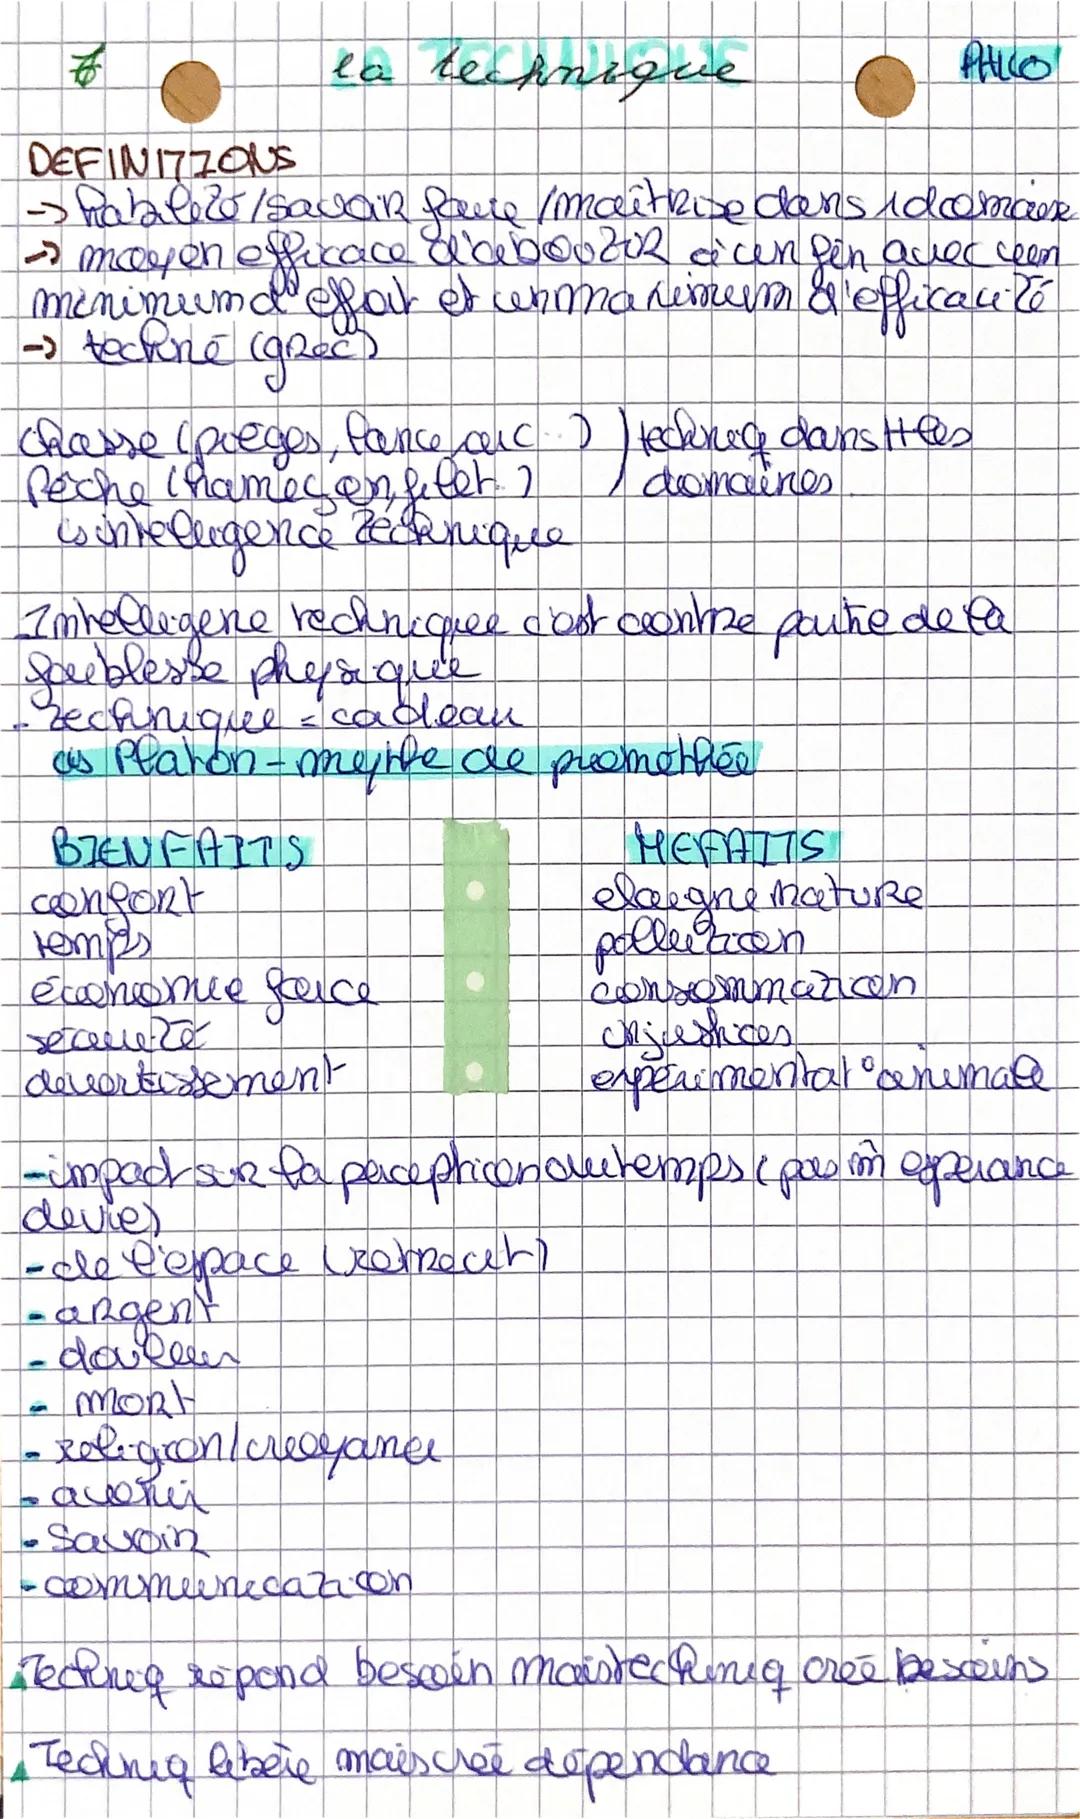 La technique PHILO
DEFINITIONS
→ habileté/savoir faire/maîtrise dans 1 domaine
→ moyen efficace d'aboutir à un fin avec un
minimum d'effort et un maximum d'efficacité
→ techné (grec)
chasse (pièges, lance, arc...) ) techniq dans ttes
Pêche (hameçon, filet.) / domaines.
↳ intelligence technique
Intelligene technique c'est contre partie de la
faiblesse physique
- technique = cadeau
↳ Platon - mythe de promethée
BIENFAITS MEFAITS
confort eloigne nature
temps pollution
économie force consommation
sécurité injustices
divertissement expérimentat° animale
- impact sur la perception du temps (pas m̂ espérance
de vie)
- de l'espace (retrecit)
- argent
- douleur
- mort
- religion/croyance
- avenir
- Savoir
- communication
Techniq répond besoin mais techniq créé besoins
Techniq libère mais créé dépendance